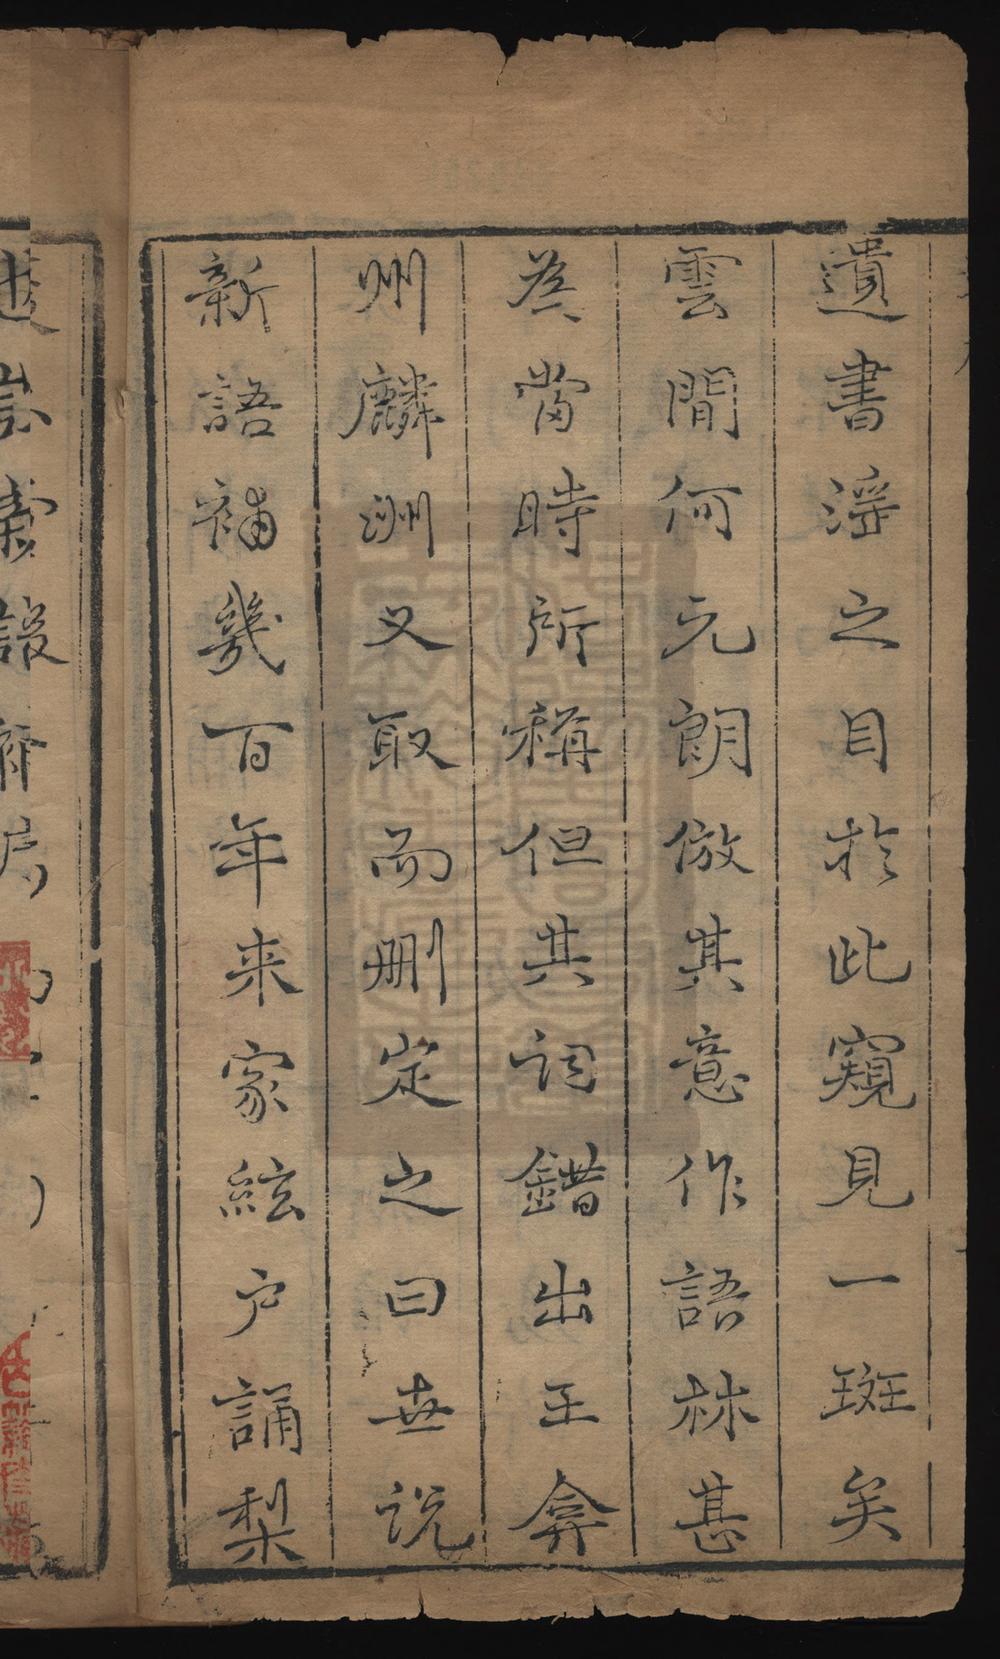 遺書淫之目於此窺見一斑矣
雲間何元朗倣其意作語林甚
為當時所稱但其詞錯出王弇
州麟洲又取而刪定之曰世說
新語補幾百年来家絃户誦梨